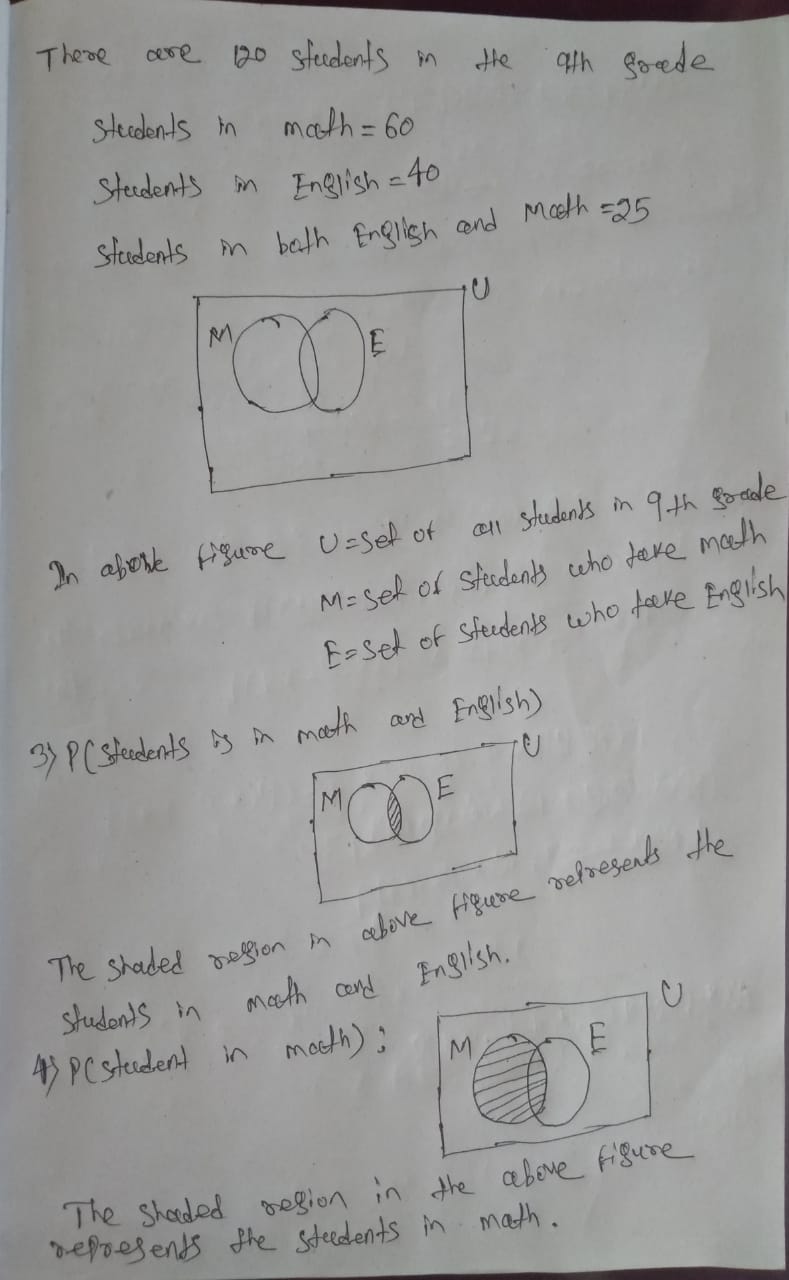 There are 120 students in the 9th grade
Students in math = 60
Students in English = 40
Students in both English and Math = 25
U
M
E
In above figure U = Set of all students in 9th grade
M = Set of Students who take math
E = Set of Students who take English
3) P(Students is in math and English)
U
M
E
The shaded region in above figure represents the
students in math and English.
4) P(student in math):
U
M
E
The shaded region in the above figure
represents the students in math.